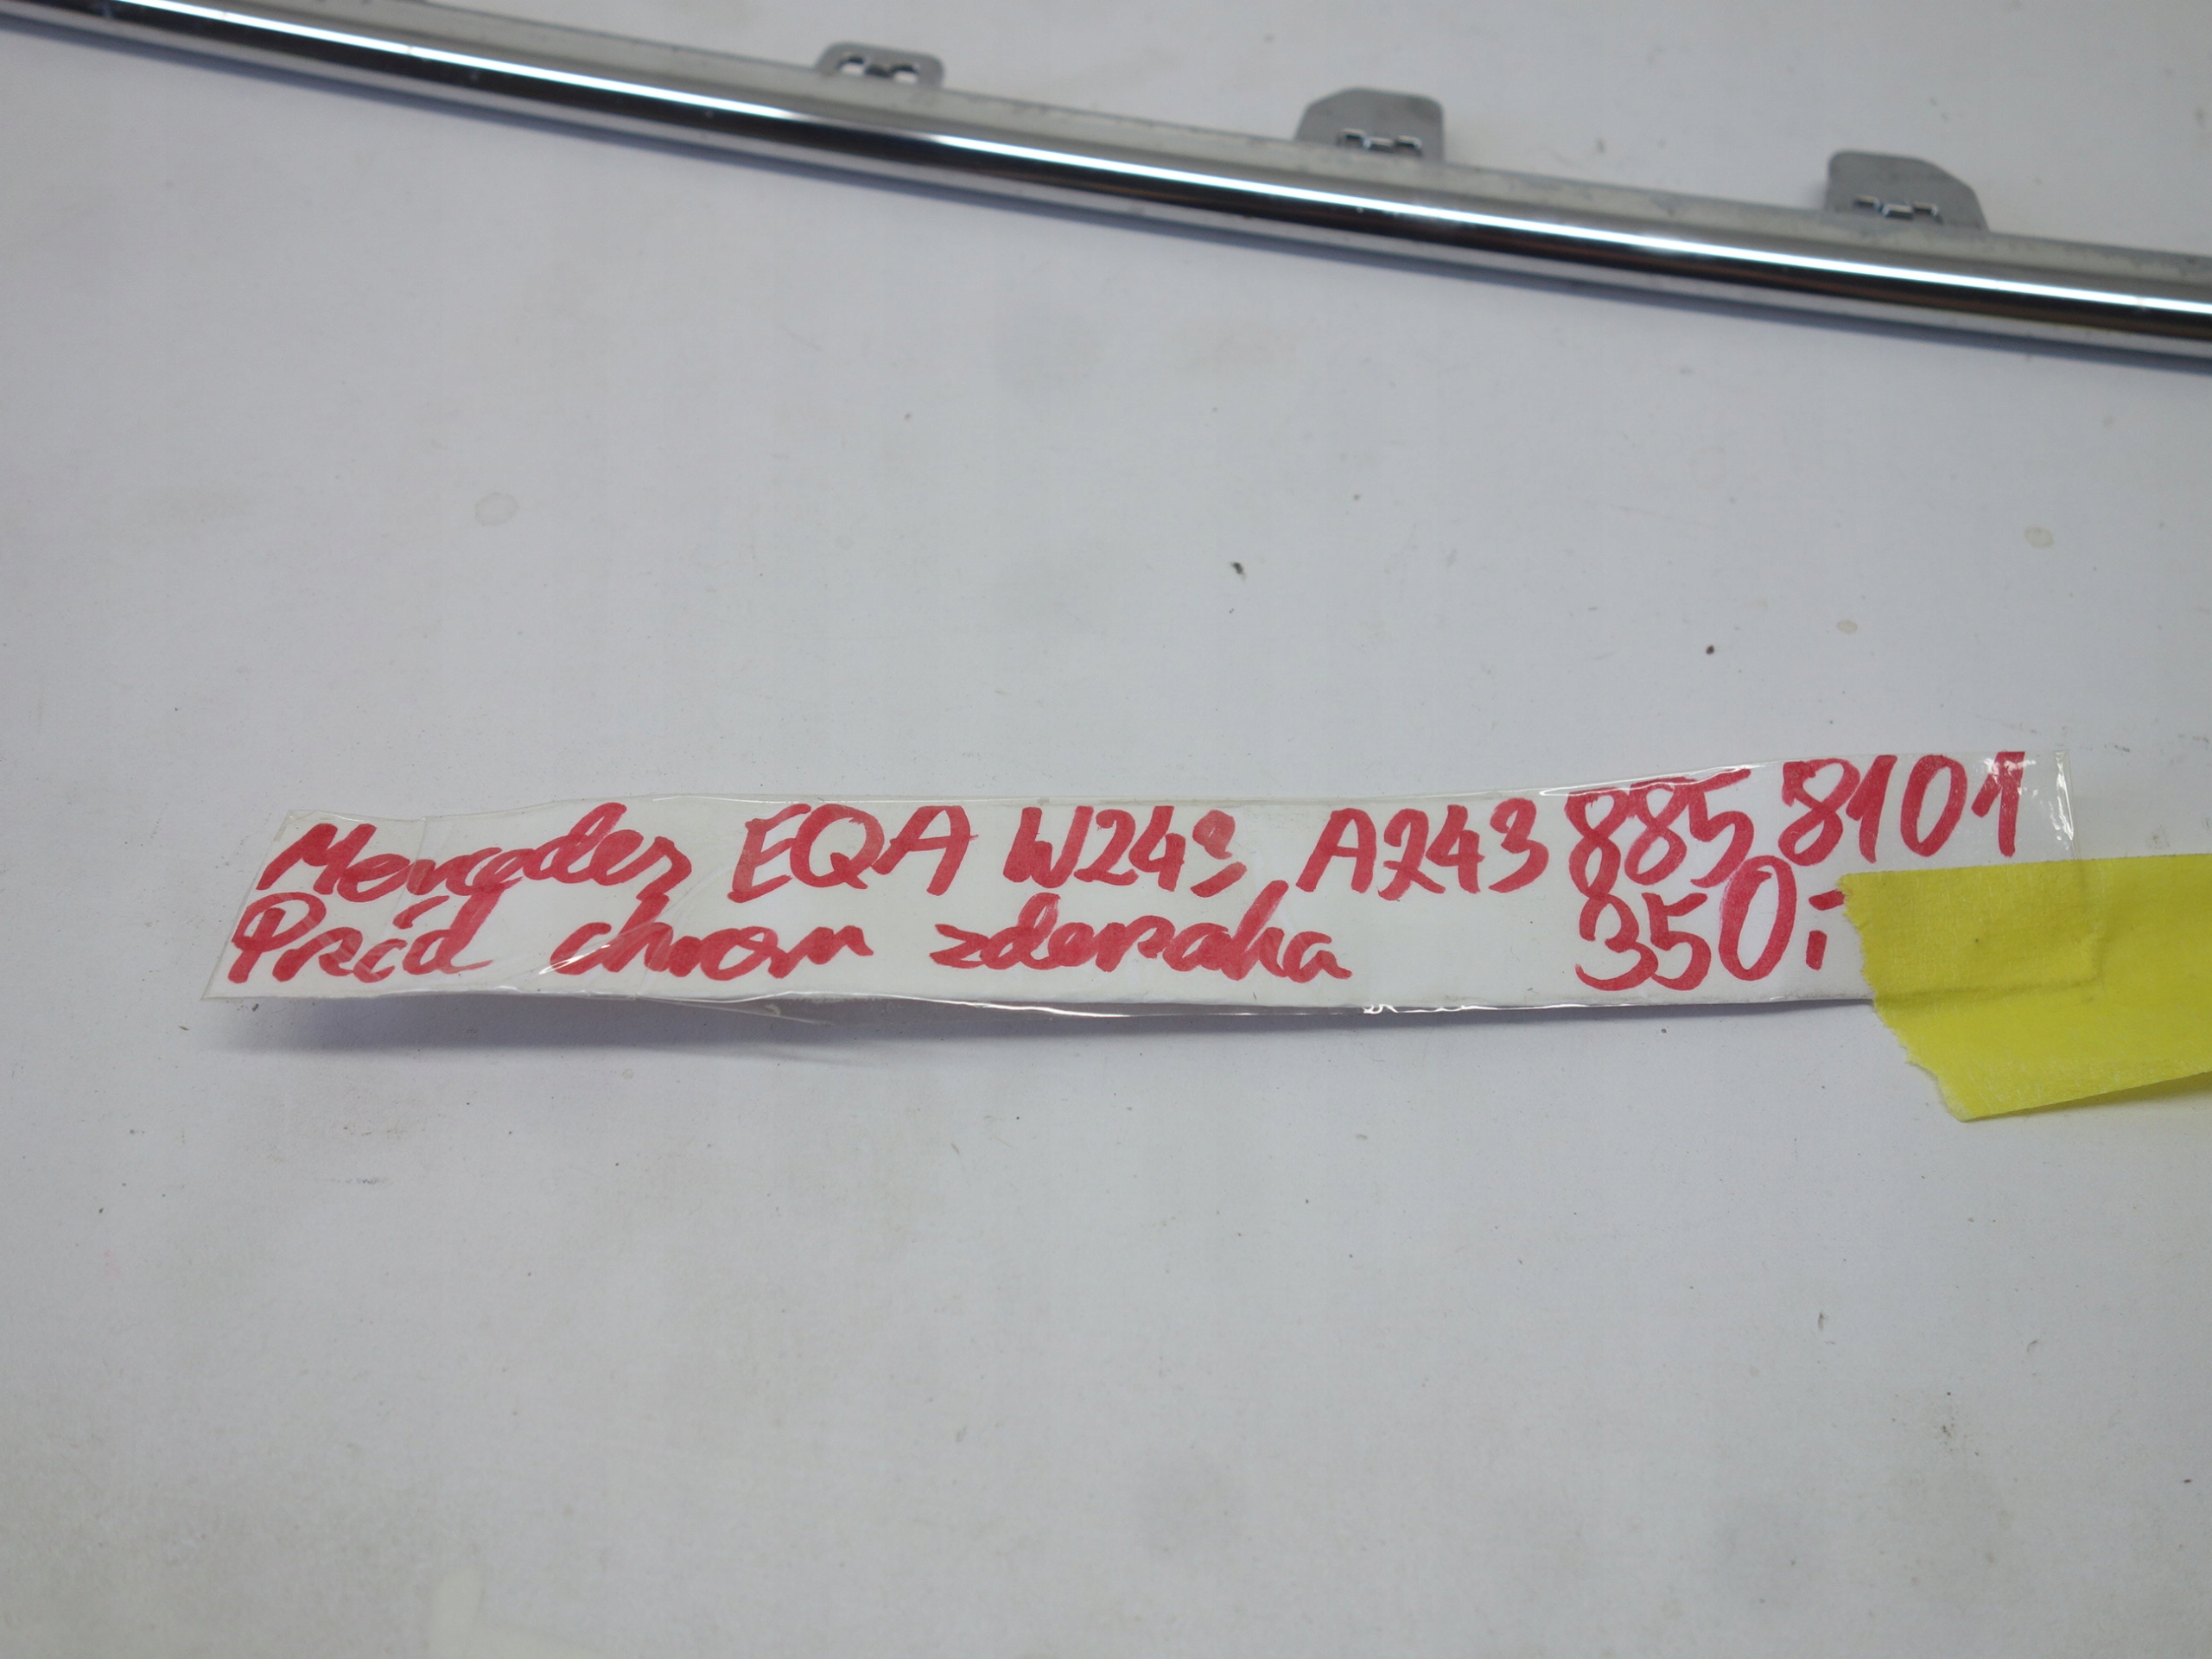 Mercedes EQA W243, A243 885 8101
Przód chrom zderzaka 350,-